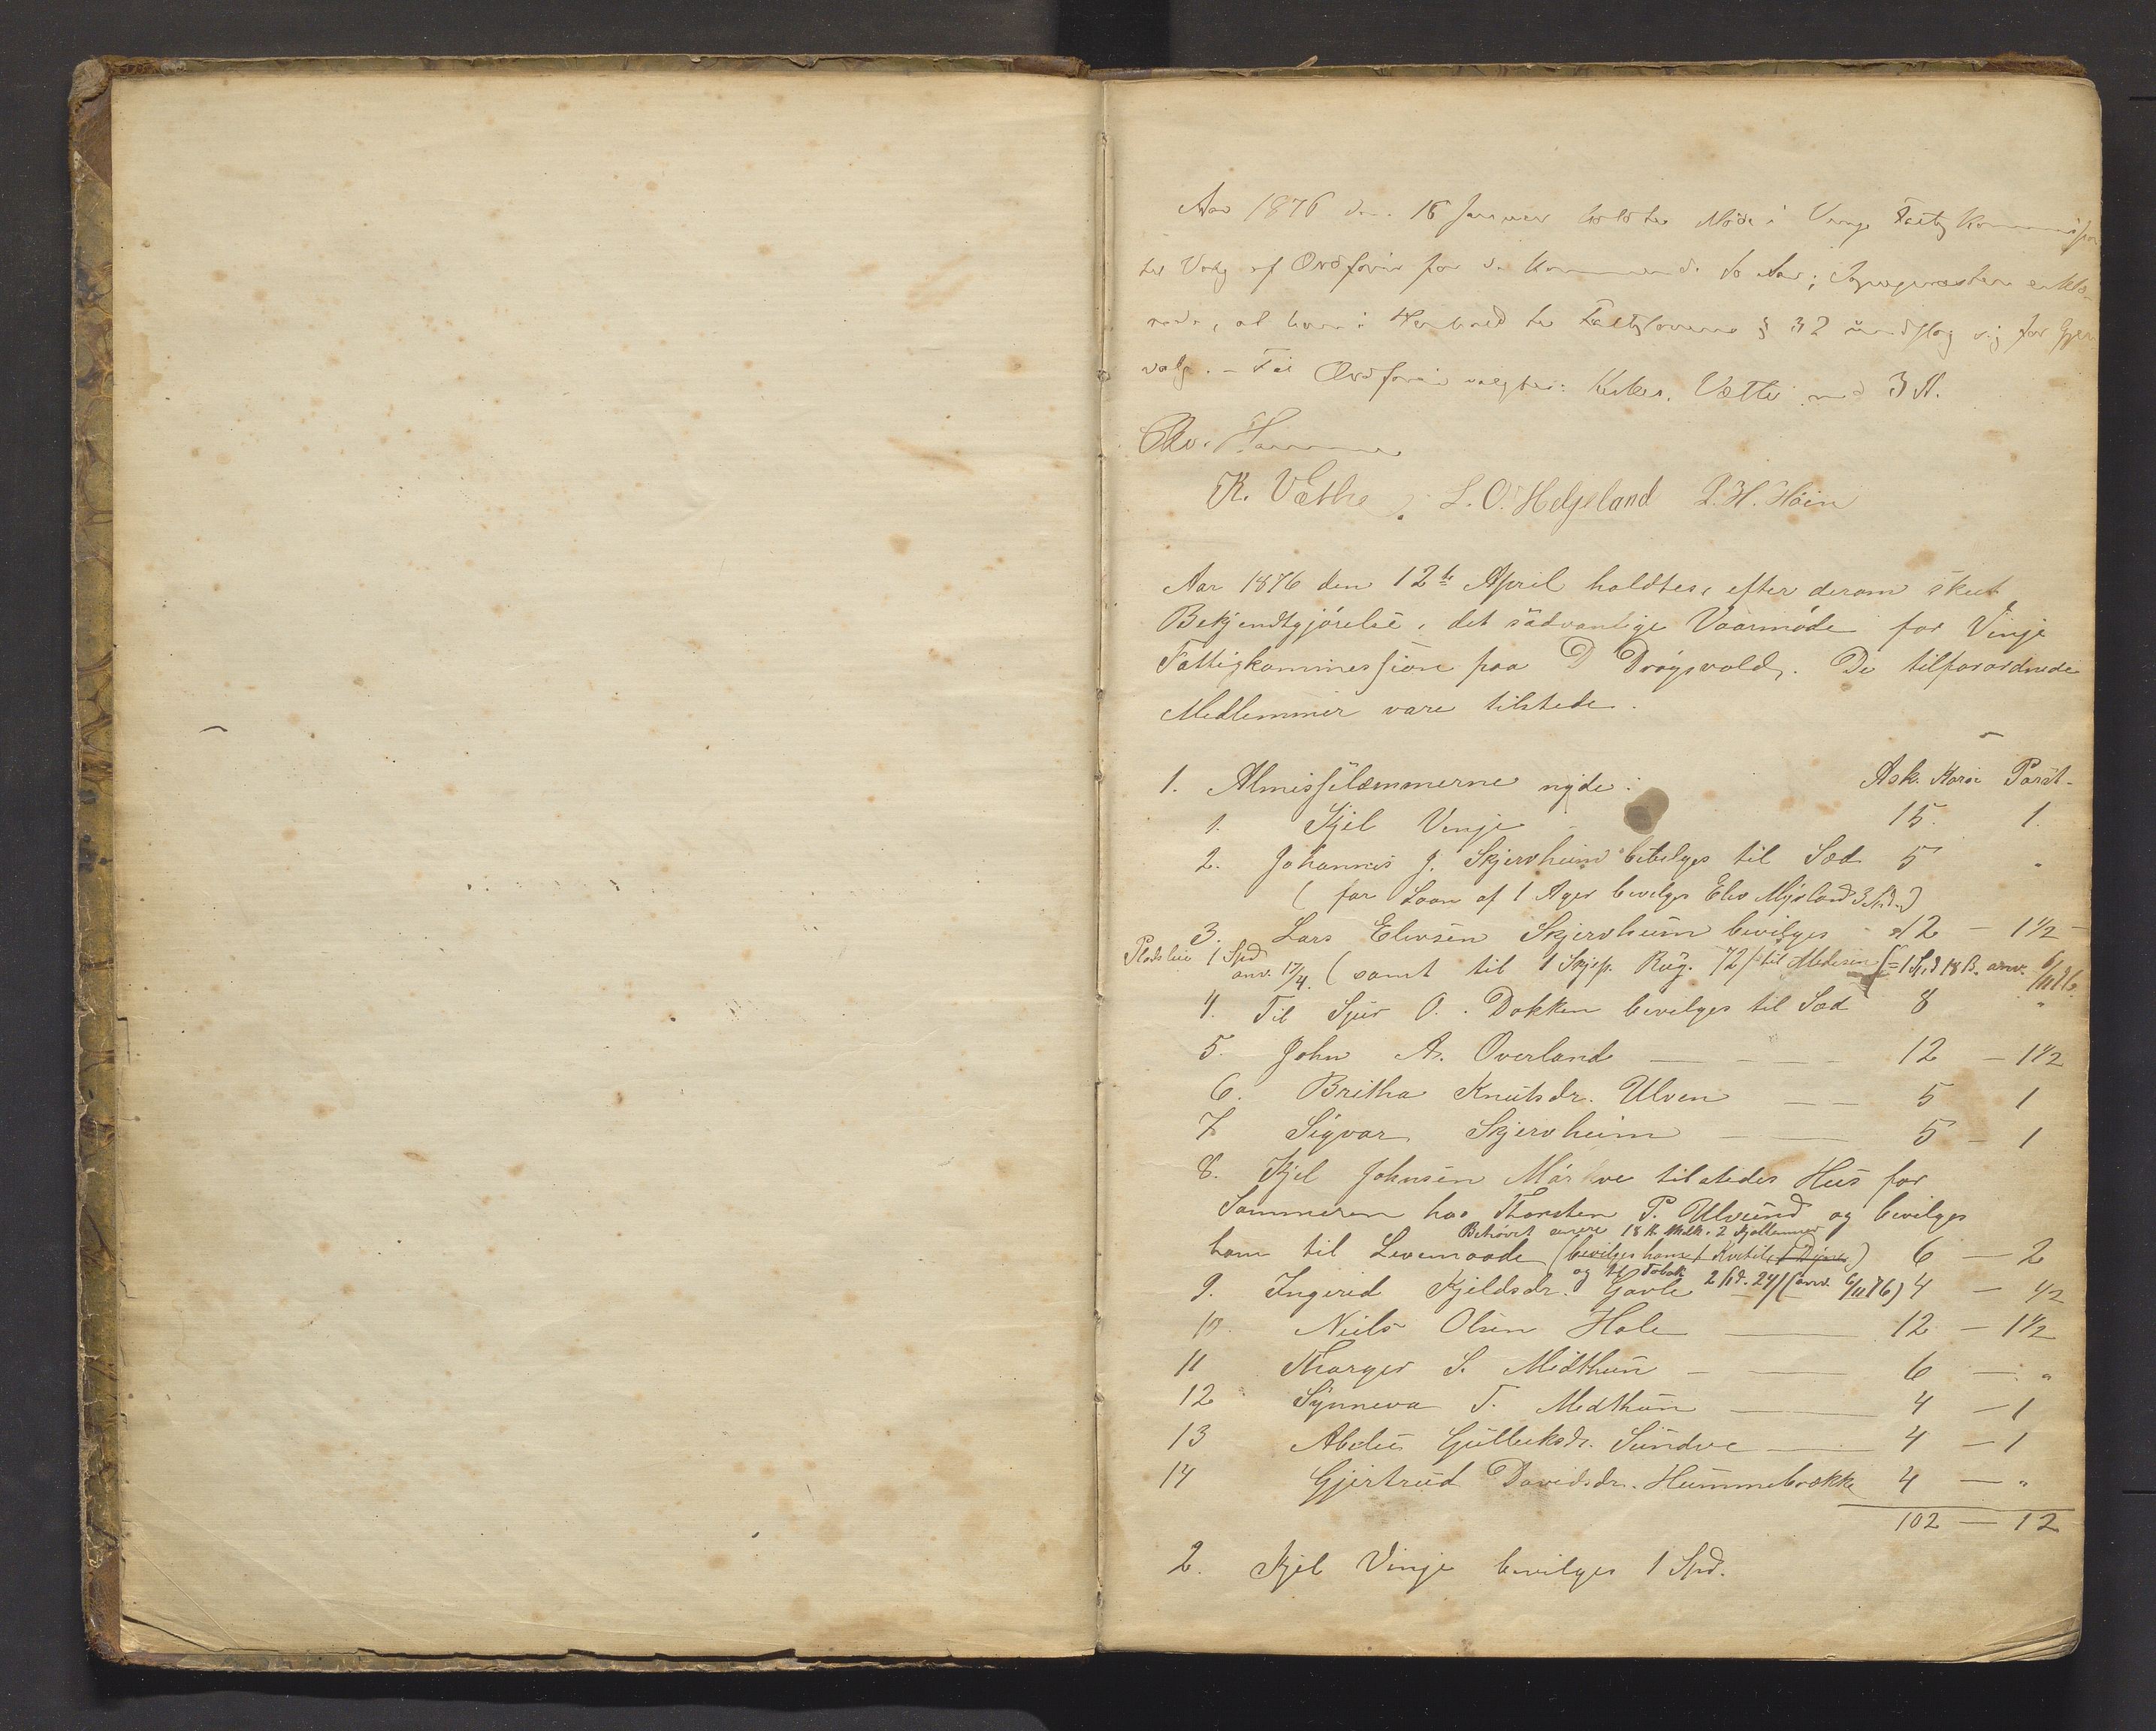 Aar 1876 den 15 Januar holdtes Möde i Vinje Fattigkommission
til Valg af Ordförer for de kommende to Aar; Sognepræsten erklæ-
rede, at han i Henhold til Fattiglovens § 32 undslog sig for Gjen
valg. – Til Ordförer valgtes: Kirkes. Vætte med 3 St.
K. Væthe, L. O. Helgeland
Aar 1876 den 12te April holdtes, efter derom skeet
Bekjendtgjörelse, det sædvanlige Vaarmöde for Vinje
Fattigkommission paa Drögsvold. De tilforordnede
Medlemmer vare tilstede.
1. Almisselæmmerne nyde: Ask. Korn Potét-
1. Kjel Vinje 15. 1.
2. Johannes J. Skjervheim bevilges til Sæd 5 "
( for Laan af 1 Ager bevilges Elev Mýrland 3 Spd.)
3. Lars Elevsen Skjervheim bevilges 12 – 1 1/2
Pladsleie 1 Spd
anv. 17/4. (samt til 1 Skjp. Rüg. 72 / til Medesin = 1 Spd 18 ß. anv. 6/11 76.
4. Til Sjur O. Dokken bevilges til Sæd 8 "
5. John A. Overland — — 12 – 1 1/2
6. Britha Knutsdr. Ulven — — 5 1
7 Sigvar Skjervheim — — 5 – 1
8. Kjel Johnsen Mörkve tilstedes Hus for
Sommeren hos Thorsten P. Ulvund og bevilges
Behövet 18 Mælk. 2
ham til Levemaade (bevilges ham 1 ) 6 — 2
og til Tobak 2 Spd. 24 ß (anv. 6/11 76)
9. Ingerid Kjeldsdr. Gavle 4 – 1/2
10. Niels Olsen Hole — 12 – 1 1/2
11 Thorger S. Midthun — — 6 — "
12 Synneva T. Midthun — 4 – 1
13 Abelu Gulleiksdr. Sundve — 4 – 1
14 Gjertrud Davidsdr. Hummelbrække 4 — "
102 — 12
2. Kjel Vinje bevilges 1 Spd.